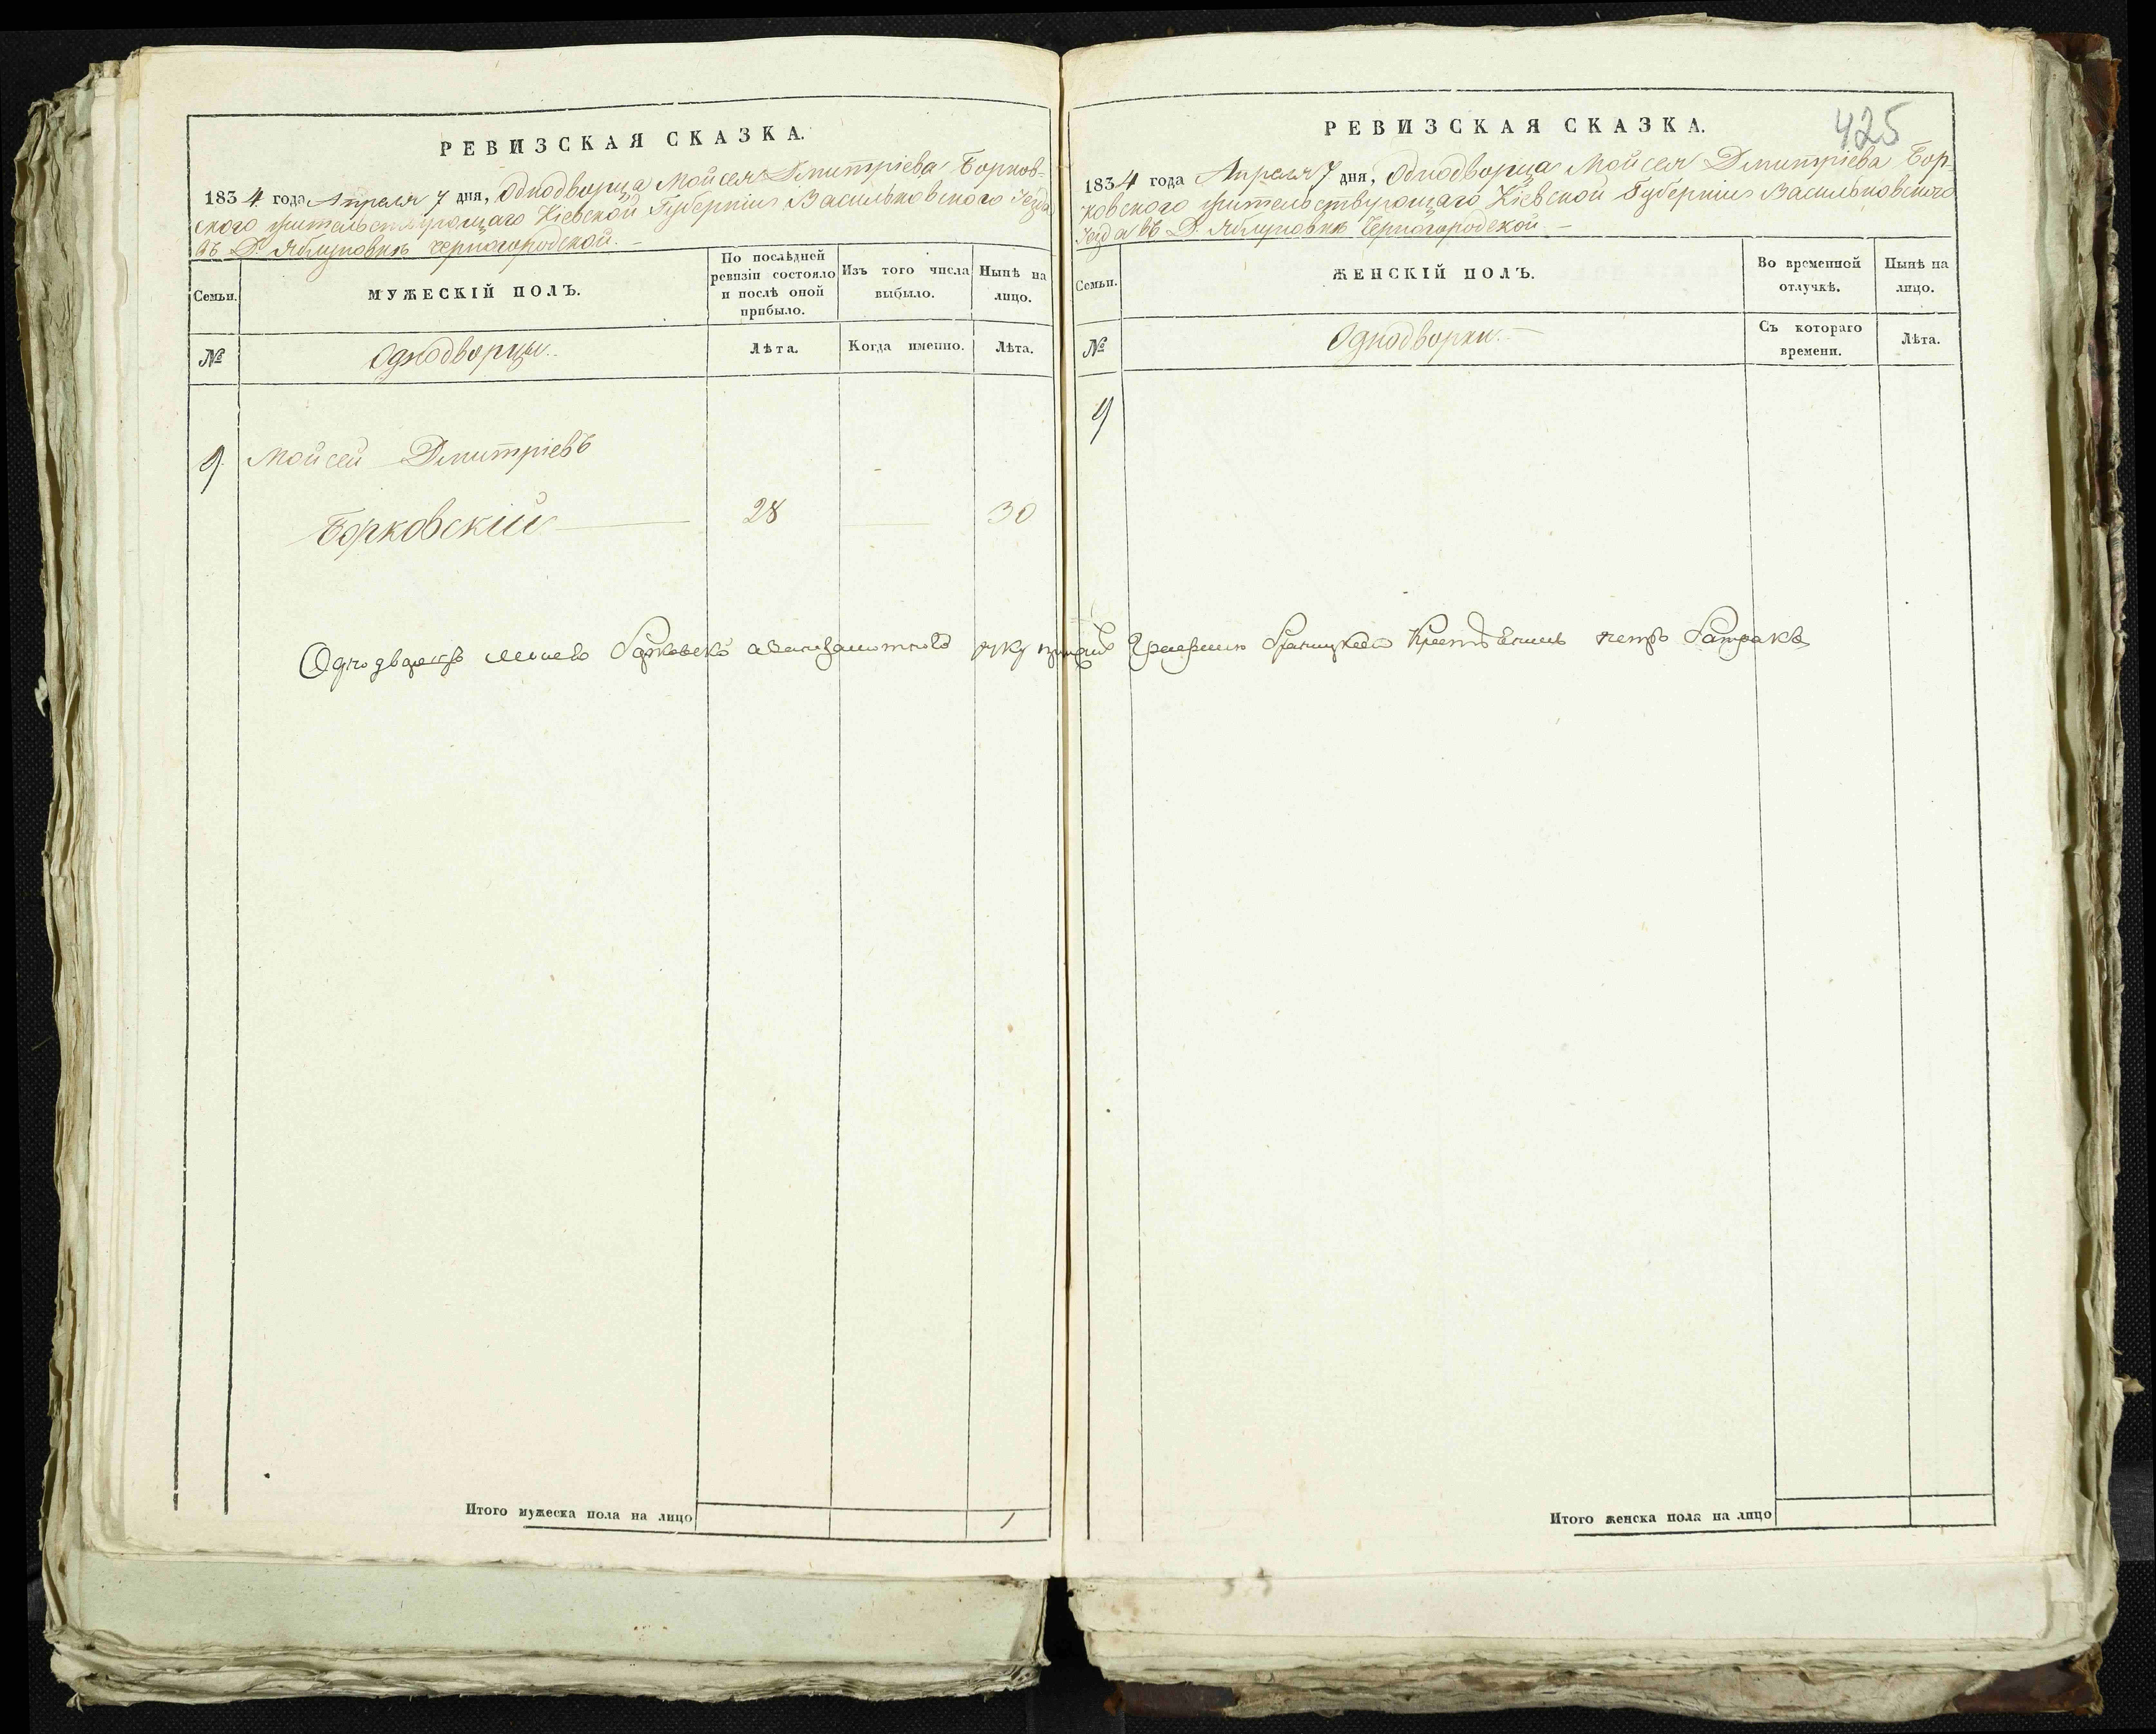 РЕВИЗСКАЯ СКАЗКА.
1834 года Апреля 7 дня, Однодворца Мойсея Дмитріева Борков-
ского жительствующаго Кіевской Губерніи Васильковского Уезда
въ Д. Яблуновкѣ Черногородской. —
Семьи.
МУЖЕСКІЙ ПОЛЪ.
По послѣдней ревизіи состояло и послѣ оной прибыло.
Изъ того числа выбыло.
Нынѣ на лицо.
№
Однодворцы.
Лѣта.
Когда именно.
Лѣта.
9. Мойсей Дмитріевъ
Борковскій — 28 30
Однодворецъ руку
Итого мужеска пола на лицо 1
425
РЕВИЗСКАЯ СКАЗКА.
1834 года Апреля 7 дня, Однодворца Мойсея Дмитріева Бор-
ковского жительствующаго Кіевской Губерніи Васильковского
Уезда въ Д. Яблуновкѣ Черногородской —
Семьи.
ЖЕНСКІЙ ПОЛЪ.
Во временной отлучкѣ.
Нынѣ на лицо.
№
Однодворки. —
Съ котораго времени.
Лѣта.
9
Итого женска пола на лицо